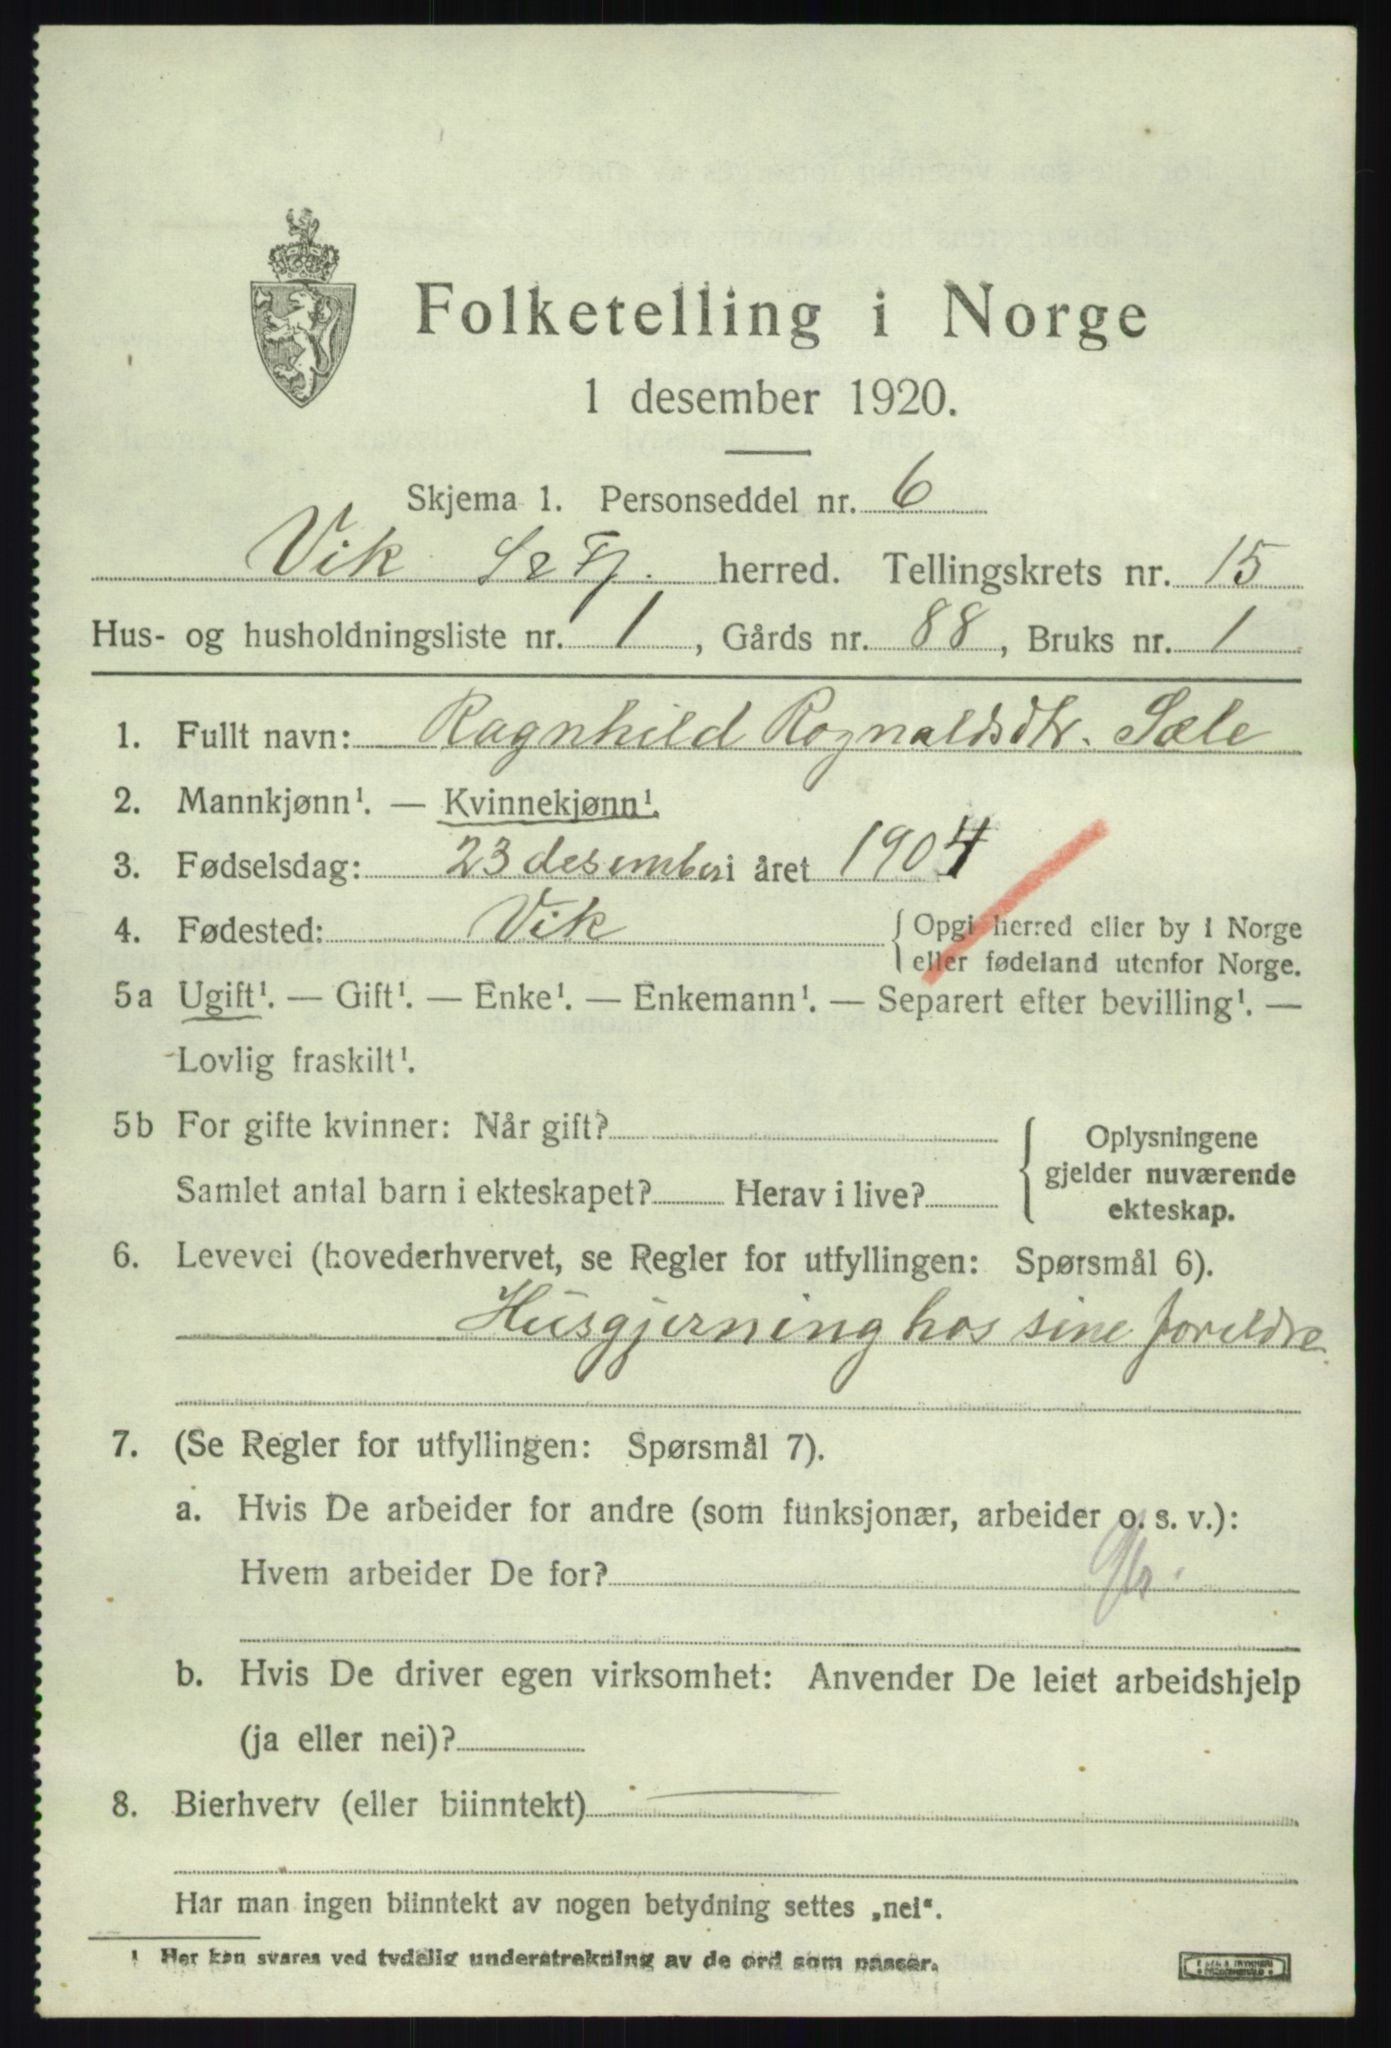 Folketelling i Norge
1 desember 1920.
Skjema 1. Personseddel nr. 6
Vik S & Fj. herred. Tellingskrets nr. 15
Hus- og husholdningsliste nr. 1, Gårds nr. 88, Bruks nr. 1
1. Fullt navn: Ragnhild Rognaldsdtr. Sæle
2. Mannkjønn¹. — Kvinnekjønn¹.
3. Fødselsdag: 23 desember i året 1904
4. Fødested: Vik { Opgi herred eller by i Norge
eller fødeland utenfor Norge.
5a Ugift¹. — Gift¹. — Enke¹. — Enkemann¹. — Separert efter bevilling¹. —
Lovlig fraskilt¹.
5b For gifte kvinner: Når gift?
Samlet antal barn i ekteskapet? Herav i live?
{ Oplysningene
gjelder nuværende
ekteskap.
6. Levevei (hovederhvervet, se Regler for utfyllingen: Spørsmål 6).
Husgjerning hos sine foreldre
7. (Se Regler for utfyllingen: Spørsmål 7).
a. Hvis De arbeider for andre (som funksjonær, arbeider o. s. v.):
Hvem arbeider De for?
b. Hvis De driver egen virksomhet: Anvender De leiet arbeidshjelp
(ja eller nei)?
8. Bierhverv (eller biinntekt) —
Har man ingen biinntekt av nogen betydning settes „nei“.
¹ Her kan svares ved tydelig understrekning av de ord som passer.